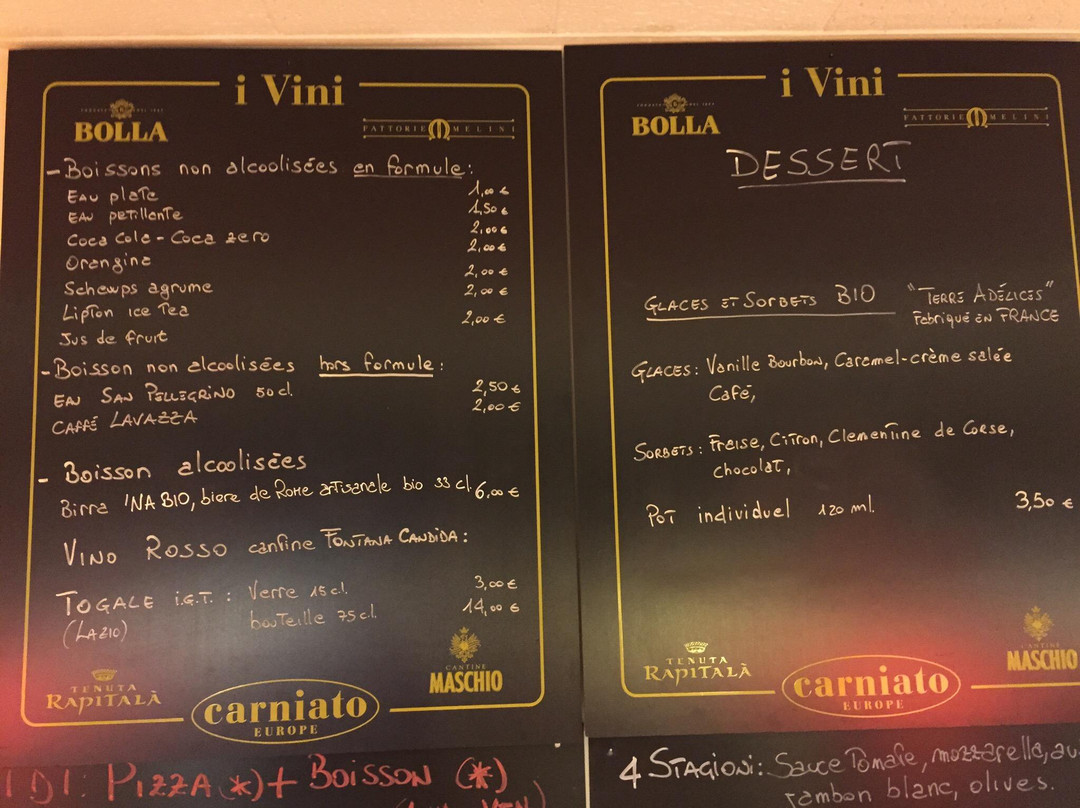 i Vini
BOLLA
FATTORIE MELINI
- Boissons non alcoolisées en formule:
EAU plate 1,00 €
EAU petillante 1,50 €
Coca Cola - Coca zero 2,00 €
Orangina 2,00 €
Schewps agrume 2,00 €
Lipton ice Tea 2,00 €
Jus de fruit 2,00 €
- Boisson non alcoolisées hors formule:
EAU SAN PELLEGRINO 50 cl. 2,50 €
CAFFÉ LAVAZZA 2,00 €
- Boisson alcoolisées
Birra 'NA BIO, biere de Rome artisanale bio 33 cl. 6,00 €
VINO ROSSO cantine FONTANA CANDIDA:
TOGALE i.G.T.: Verre 15 cl. 3,00 €
(LAZIO) bouteille 75 cl. 14,00 €
TENUTA
RAPITALÀ
CANTINE
MASCHIO
carniato
EUROPE
PIZZA (*) + BOISSON (*)
i Vini
BOLLA
FATTORIE MELINI
DESSERT
GLACES ET SORBETS BIO "TERRE ADÉLICES"
Fabriqué EN FRANCE
GLACES: Vanille Bourbon, Caramel-crème salée
Café,
SORBETS: Fraise, Citron, Clementine de Corse,
chocolat,
POT individuel 120 ml. 3,50 €
TENUTA
RAPITALÀ
CANTINE
MASCHIO
carniato
EUROPE
4 STAGIONI: Sauce Tomate, mozzarella, au
jambon blanc, olives.